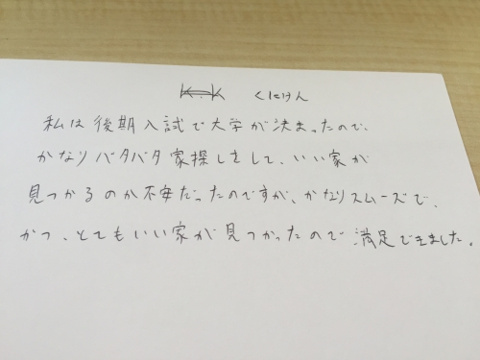 K.K くにけん
私は後期入試で大学が決まったので、
かなりバタバタ家探しをして、いい家が
見つかるのか不安だったのですが、かなりスムーズで、
かつ、とてもいい家が見つかったので満足できました。